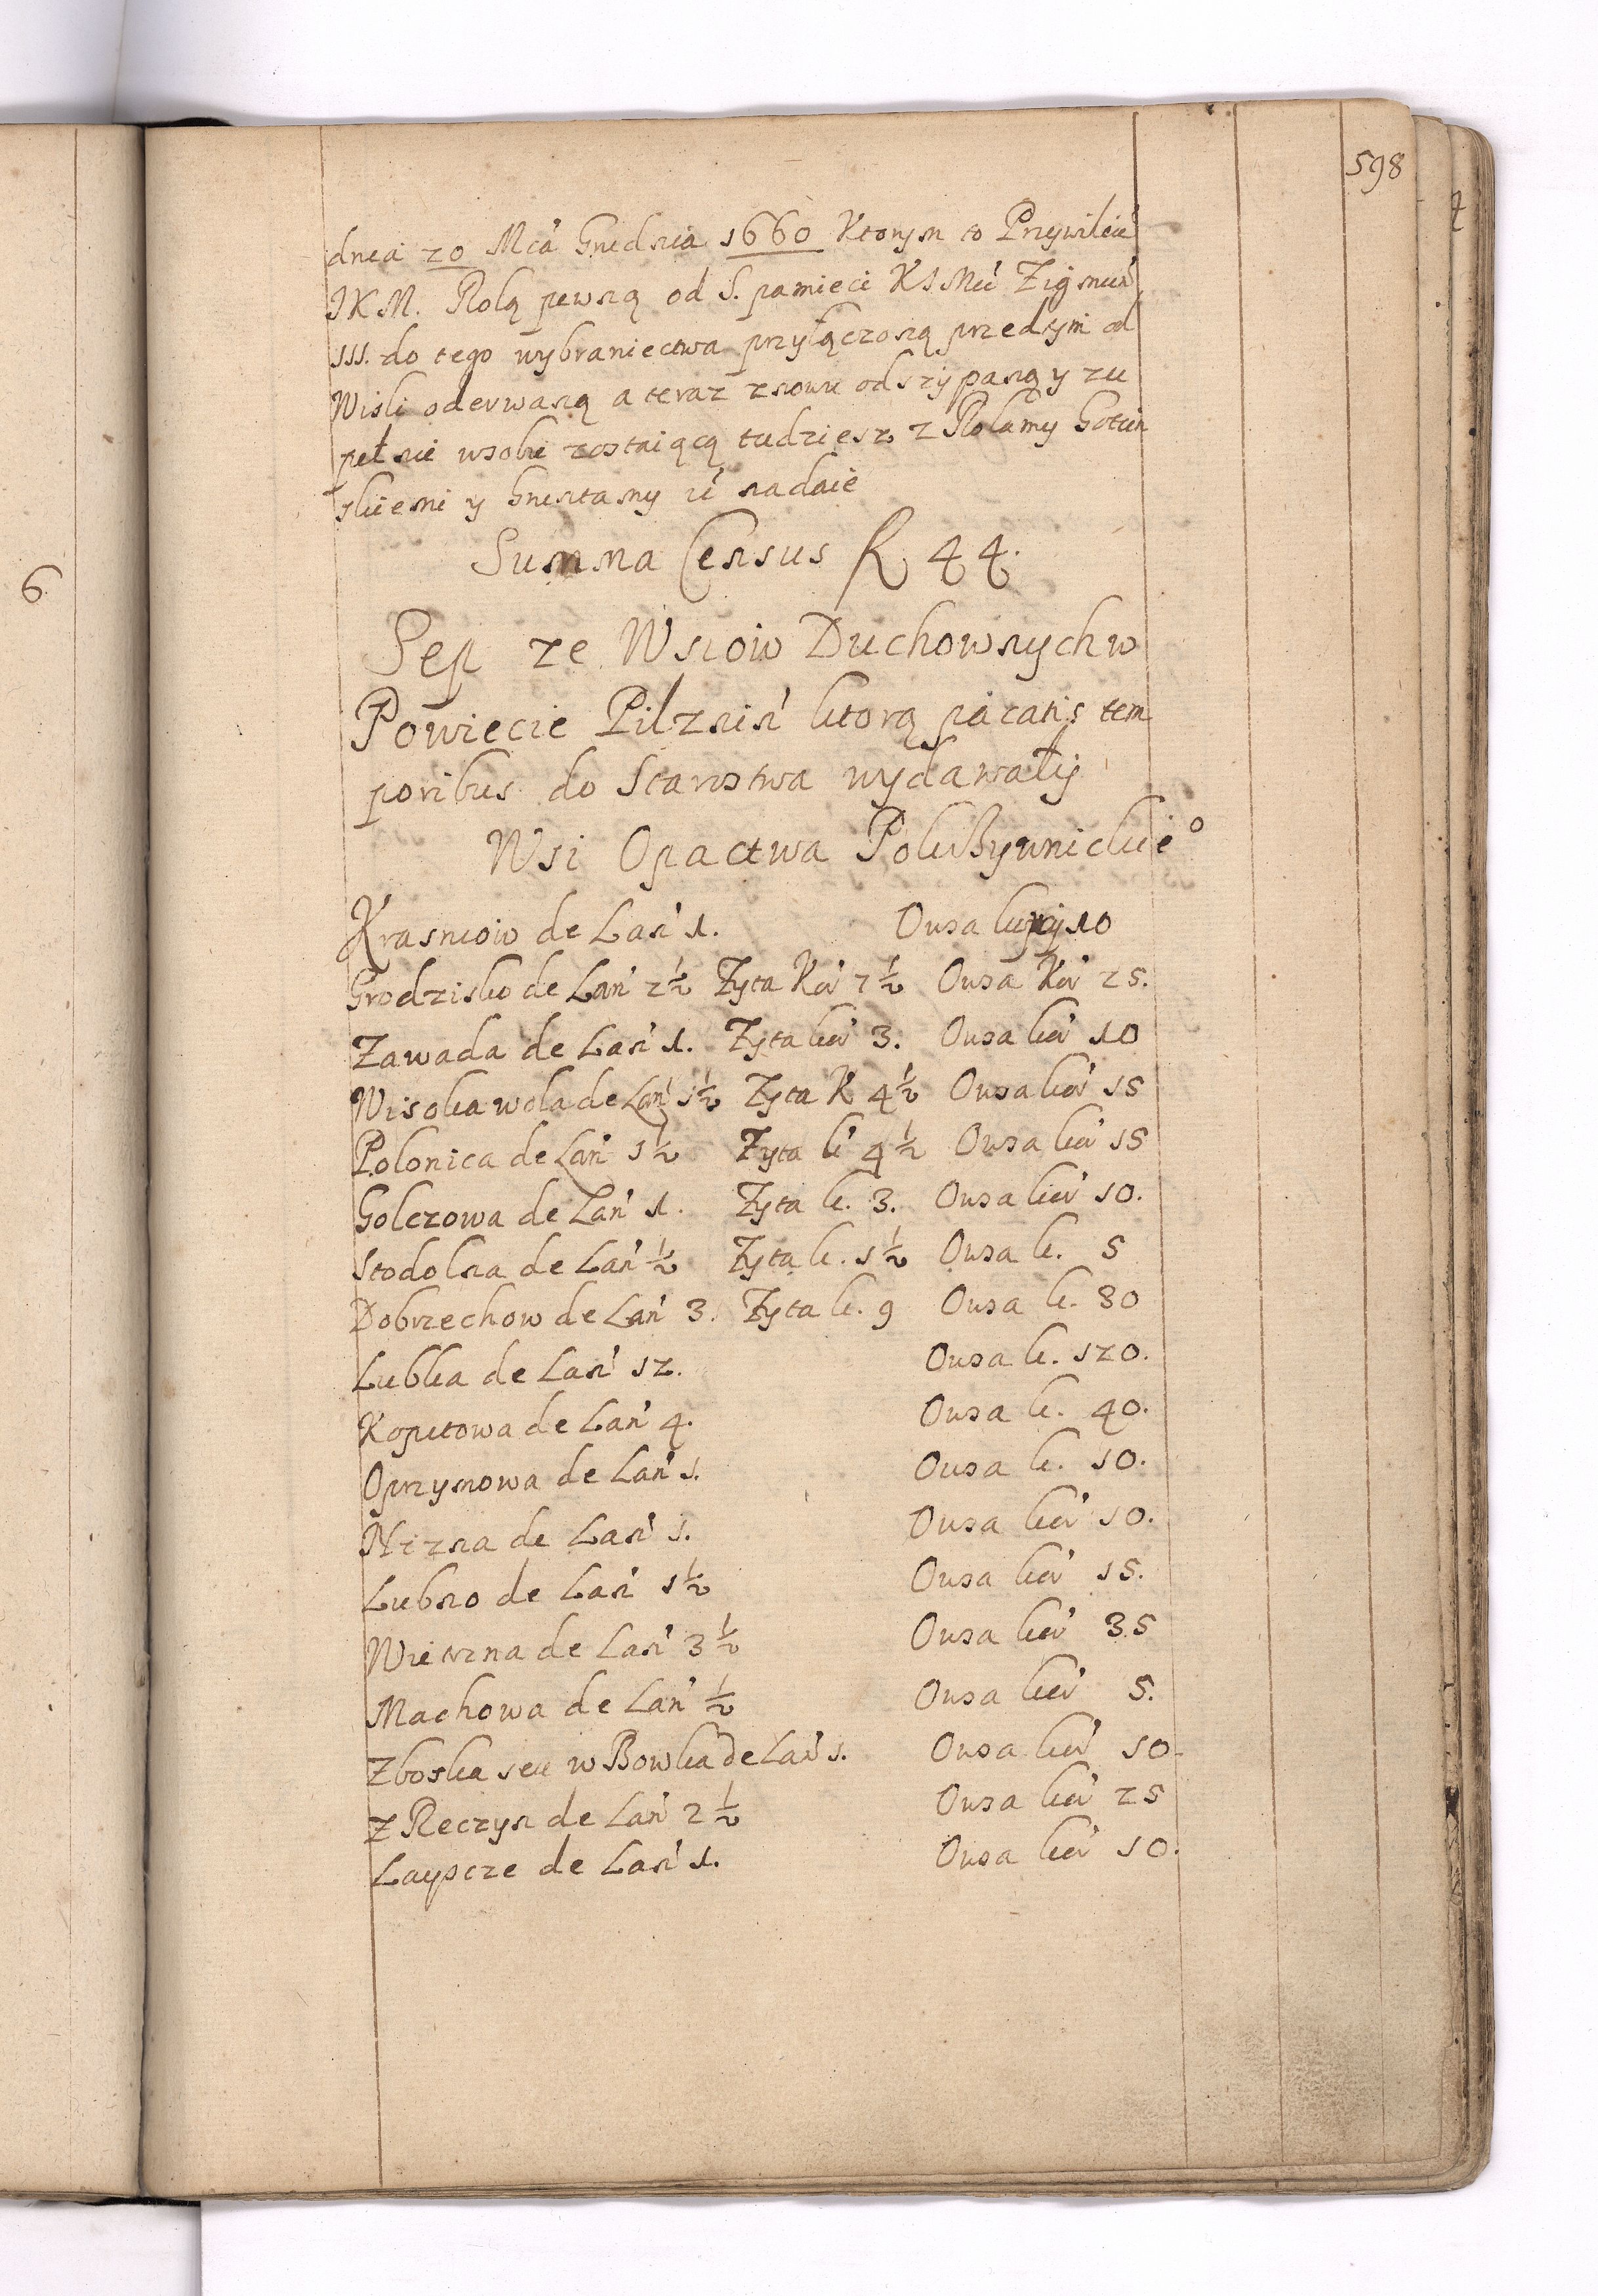 598
dnia 20 Mcá Grudnia 1660 Ktorym to Przywileiu
JKM. Rolą pewną od S. pamieci K J Mci Zigmun
III. do tego wybraniectwa przyłączoną przedtym od
Wisli oderwaną a teraz znowu odszypaną y zu
pełnie wsobie zostaiącą tudziesz z Rolamy
skiemi y Gruntamy nadaie
Summa Census R 44.
Sep ze Wsiow Duchownych w
Powiecie Pilzniń ktorą pacatis tem
poribus do Starostwa wydawały
Wsi Opactwa
de Łań 1. Owsa 10
Grodzisko de Łań 2½ Zyta Kor 7½ Owsa Kor 25.
Zawada de Łań 1. Zyta kor 3. Owsa kor 10
Wisoka wola de Łań 1½ Zyta K 4½ Owsa kor 15
Polonica de Łań 1½ Zyta k 4½ Owsa kor 15
Golczowa de Łań 1. Zyta k. 3. Owsa kor 10.
Stodolna de Łań ½ Zyta k. 1½ Owsa k. 5
Dobrzechow de Łań 3. Zyta k. 9 Owsa k. 30
Lubka de Łań 12. Owsa k. 120.
Kopitowa de Łań 4. Owsa k. 40.
Oprzynowa de Łań 1. Owsa k. 10.
Nizna de Łań 1. Owsa kor 10.
Lubno de Łań 1½ Owsa kor 15.
de Łań 3½ Owsa kor 35
Machowa de Łań ½ Owsa kor 5.
Zboska seu w Bowka de Łań 1. Owsa kor 10.
Z Reczyn de Łań 2½ Owsa kor 25
Layscze de Łań 1. Owsa kor 10.
6